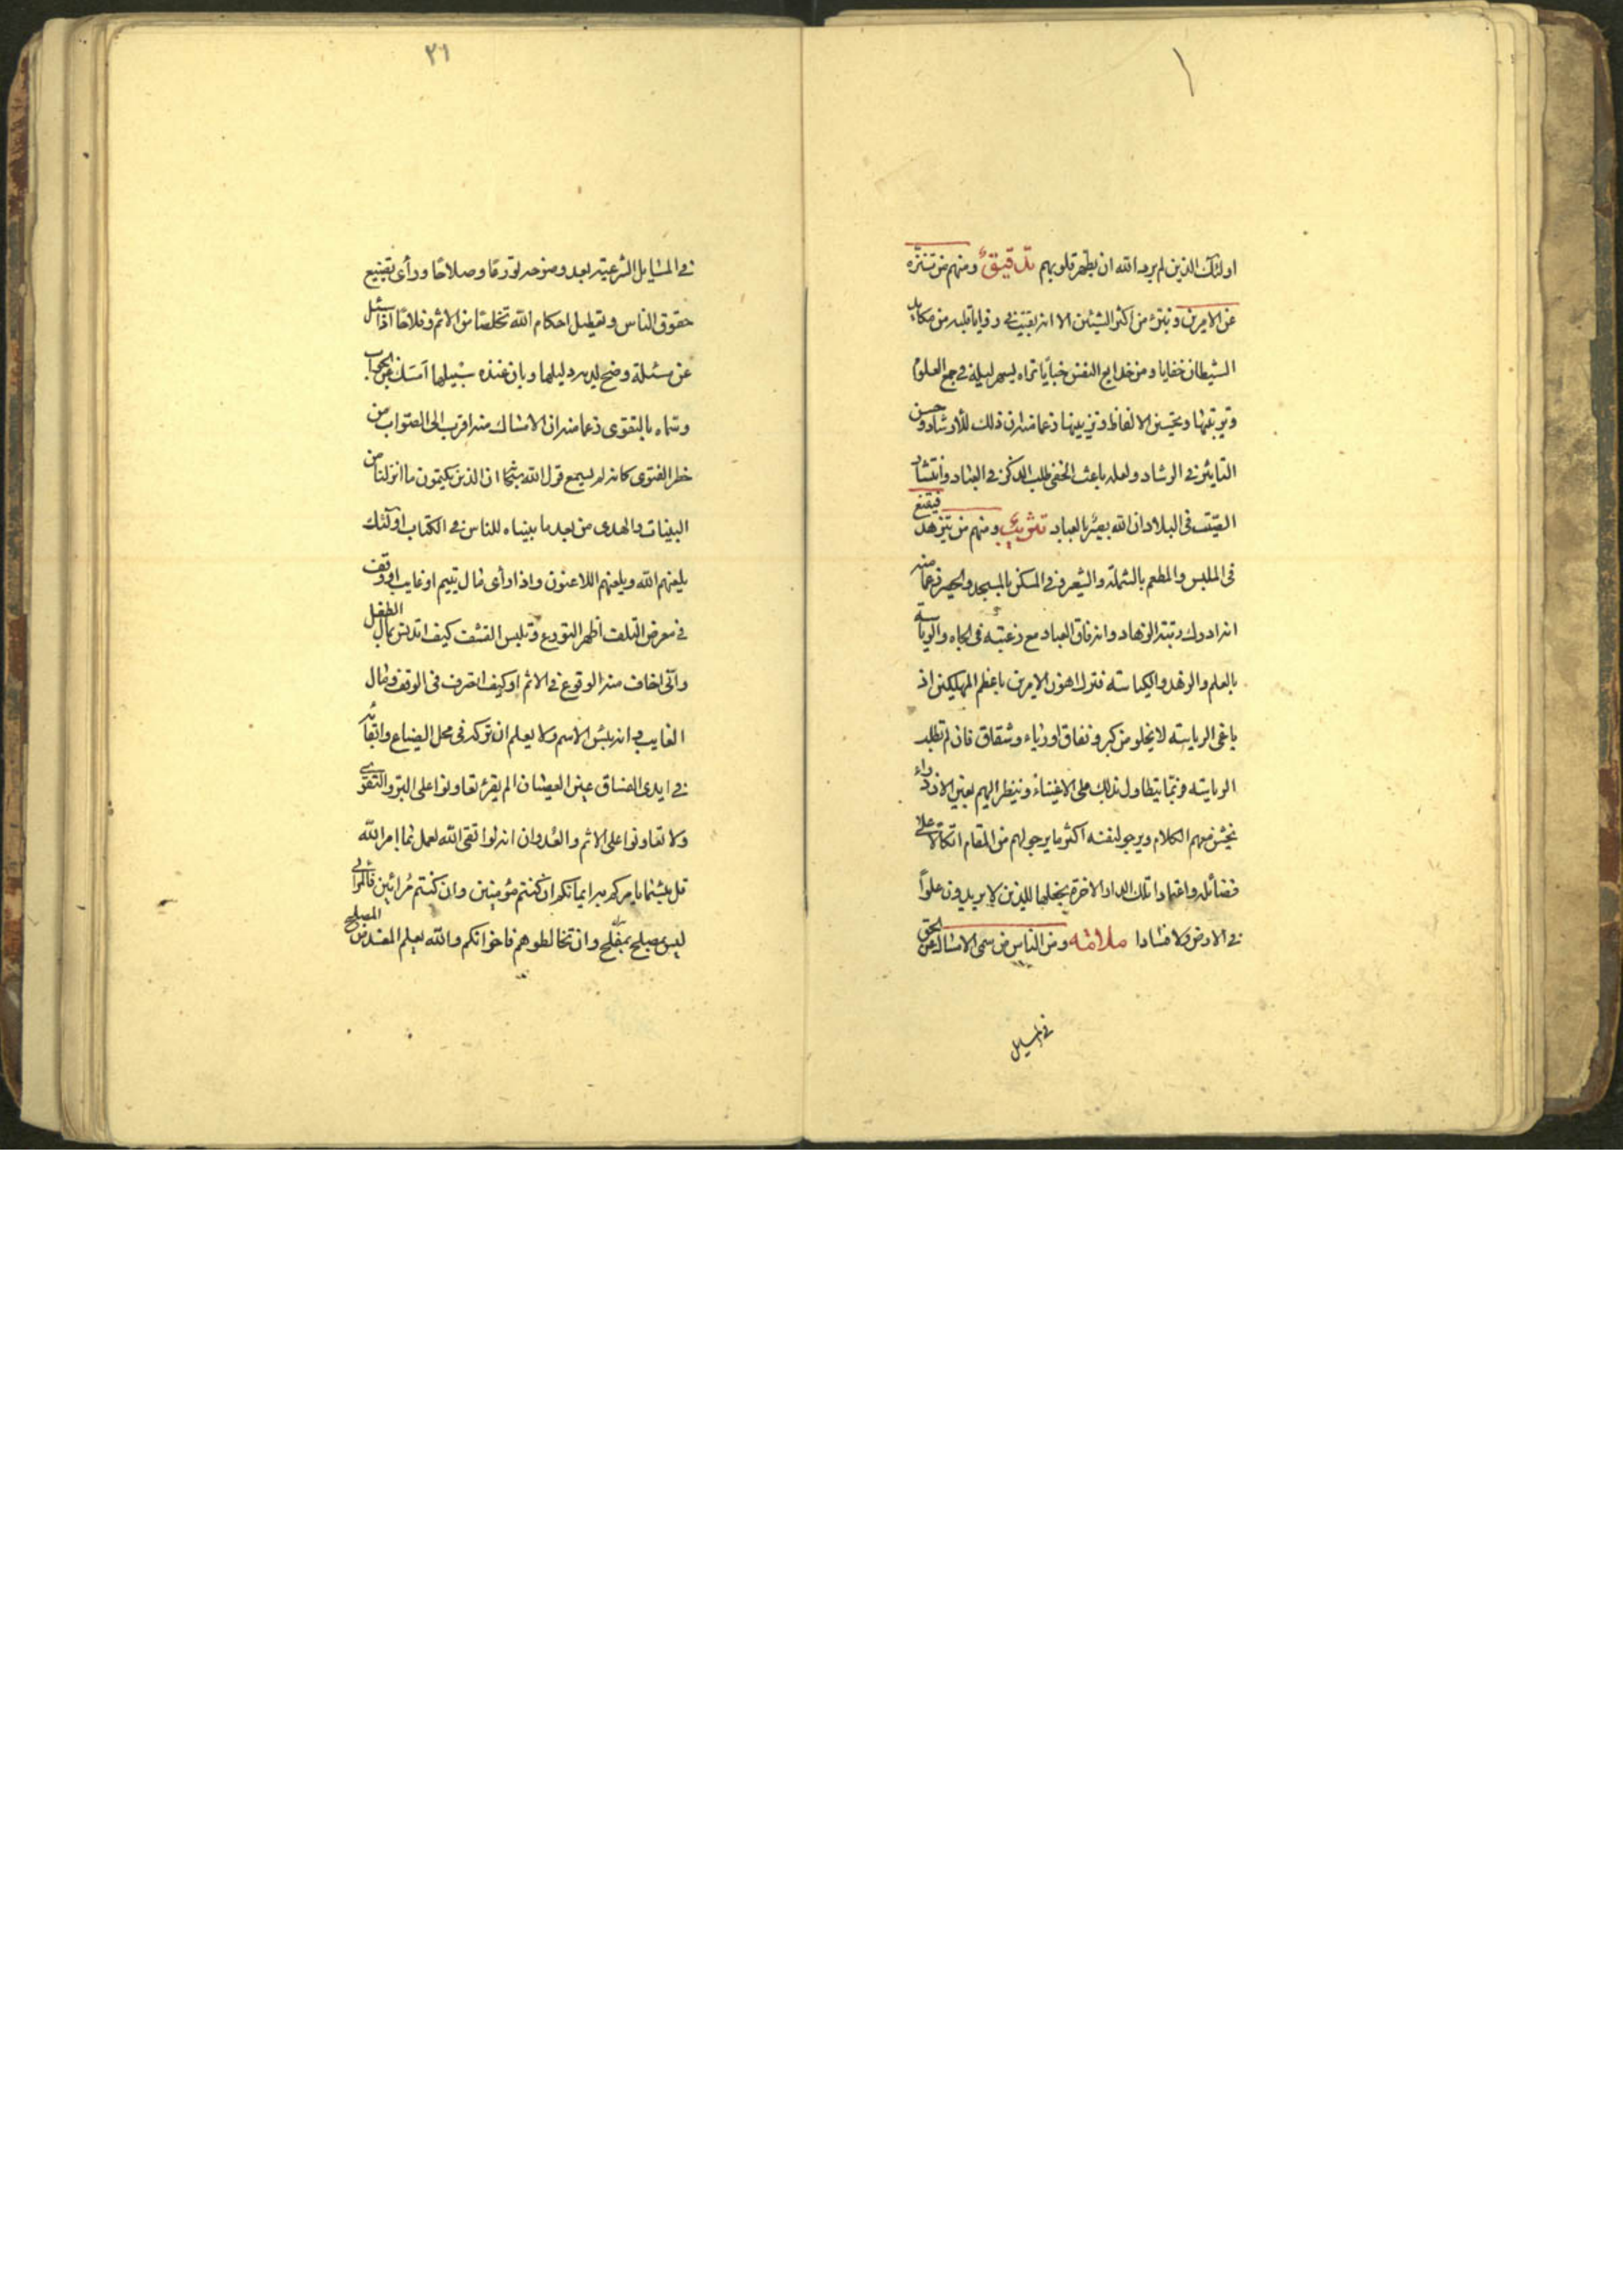 اولئك الذين لم يرد الله ان يطهر قلوبهم تدقيق ومنهم من تنزه
عن الامرين وتبرء من اكثر الشيئين الا انه بقيت في زوايا قلبه من مكايد
الشيطان خفايا ومن خدايع النفس خبايا تراه يسهر ليله في جمع العلوم
وترتيبها وتحسين الالفاظ وتزيينها زعما منه ان ذلك للارشاد وحسن
التاثير في الرشاد ولعله باعثه الخفي طلب الذكر في العباد وانتشار
الصيت في البلاد ان الله بصير بالعباد تثريب ومنهم من تزهد فيقنع
في الملبس والمطعم بالشملة والشعر وفي المسكن بالمسجد والحصر زعما منه
انه ادرك رتبة الزهاد وانه فاق العباد مع رغبته في الجاه والرياسة
بالعلم والزهد والكياسه فترك اهون الامرين باعظم المهلكين اذ
باغي الرياسة لا يخلو من كبر ونفاق او رياء وشقاق فان لم تطلبه
الرياسة فربما يتطاول بذلك على الاغنياء وينظر اليهم بعين الازدراء
يخشن معهم الكلام ويرجو لنفسه اكثر ما يرجو لهم من المقام اتكالا على
فضائله واعتمادا تلك الدار الاخرة نجعلها للذين لا يريدون علوا
في الارض ولا فسادا ملامة ومن الناس من سمى الامساك عن الحق
في المسايل
٢١
في المسايل الشرعية بعد وضوحه تورعا وصلاحا ورأى تضييع
حقوق الناس وتعطيل احكام الله تخلصا من الاثم وفلاحا اذا سئل
عن مسئلة وضح لديه دليلها وبان عنده سبيلها امسك عن الجواب
وسماه بالتقوى زعما منه ان الامساك منه اقرب الى الصواب من
خطر الفتوى كانه لم يسمع قول الله ان الذين يكتمون ما انزلنا من
البينات والهدى من بعد ما بيناه للناس في الكتاب اولئك
يلعنهم الله ويلعنهم اللاعنون واذا رأى مال يتيم او غايب او وقف
في معرض التلف اظهر التورع وتلبس القشف كيف اتدنس بمال الطفل
واني اخاف منه الوقوع في الاثم او كيف اتصرف في الوقف ومال
الغايب وانه بئس الاسم ولا يعلم ان تركه في محل الضياع وابقائه
في ايدى الفساق عين العصيان الم يقرء تعاونوا على البر والتقوى
ولا تعاونوا على الاثم والعدوان انه لو اتقى الله لعمل بما امر الله
قل بئسما يامركم به ايمانكم ان كنتم مؤمنين وان كنتم مرائين
ليس مصلح بمفلح وان تخالطوهم فاخوانكم والله يعلم المفسد من المصلح